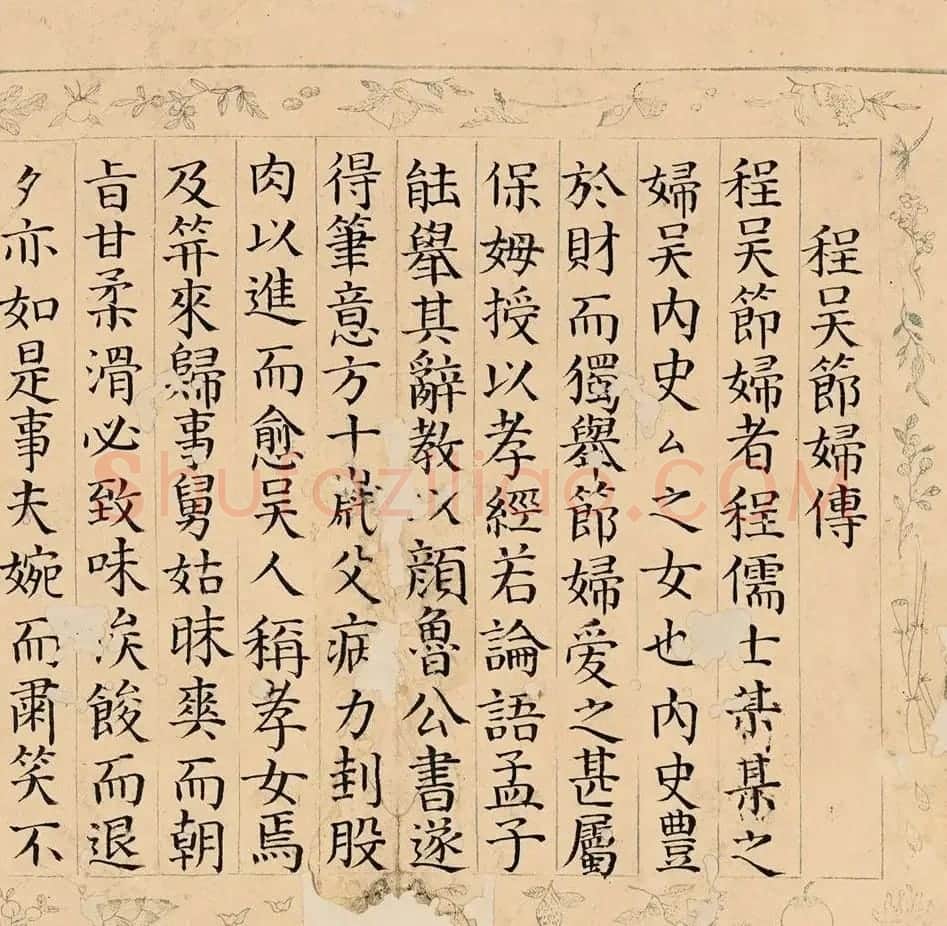 程吴節婦傳
程吴節婦者程儒士某之
婦吴内史厶之女也内史豊
於財而獨舉節婦爱之甚屬
保姆授以孝經若論語孟子
能舉其辭教以顔魯公書遂
得筆意方十歲父病力刲股
肉以進而愈吴人稱孝女焉
及笄來歸事舅姑昧爽而朝
旨甘柔滑必致味俟餕而退
夕亦如是事夫婉而肅笑不
Shufaziliao.COM